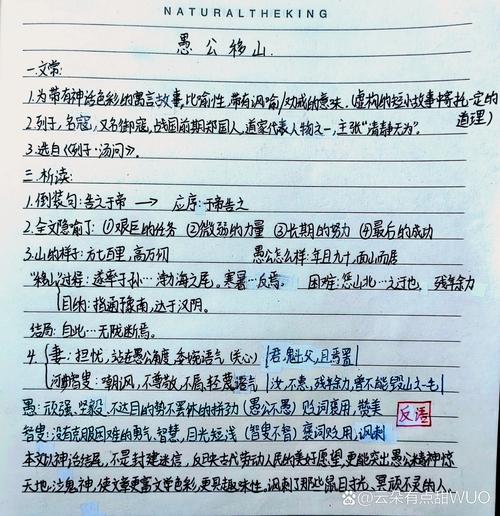 NATURALTHEKING
愚公移山.
一.文常:
1.为带有神话色彩的寓言故事,比喻性,带有讽喻/劝戒的意味.(虚构的短小故事中寄托一定的道理)
2.列子,名寇,又名御寇,战国前期郑国人,道家代表人物之一,主张"清静无为".
3.选自《列子·汤问》.
二.析读:
1.倒装句:告之于帝 → 应序:于帝告之
2.全文隐喻了:①艰巨的任务 ②微弱的力量 ③长期的努力 ④最后的成功
3.山的样子:方七百里,高万仞 愚公怎么样:年且九十,面山而居
"移山"过程:遂率子孙…渤海之尾。寒暑…反焉. 困难:惩山北…之迂也, 残年余力
目的:指通豫南,达于汉阴.
结局:自此…无陇断焉.
4. 妻:担忧,站在愚公角度,委婉语气(关心) 君,魁父,且焉置
河曲智叟:嘲讽,不尊敬,不屑,轻蔑语气 汝,不惠,残年余力,曾不能毁山之一毛
愚:顽强,坚毅,不达目的势不罢休的拼劲(愚公不愚)贬词褒用,赞美
反语
智叟:没有克服困难的勇气,智慧,目光短浅(智叟不智)褒词贬用,讽刺
本文以神话结尾,不是封建迷信,反映古代劳动人民的美好愿望,更能突出愚公精神惊
天地泣鬼神,使文章更富文学色彩,更具趣味性,讽刺了那些鼠目寸光,冥顽不灵的人.
@云朵有点甜WUO